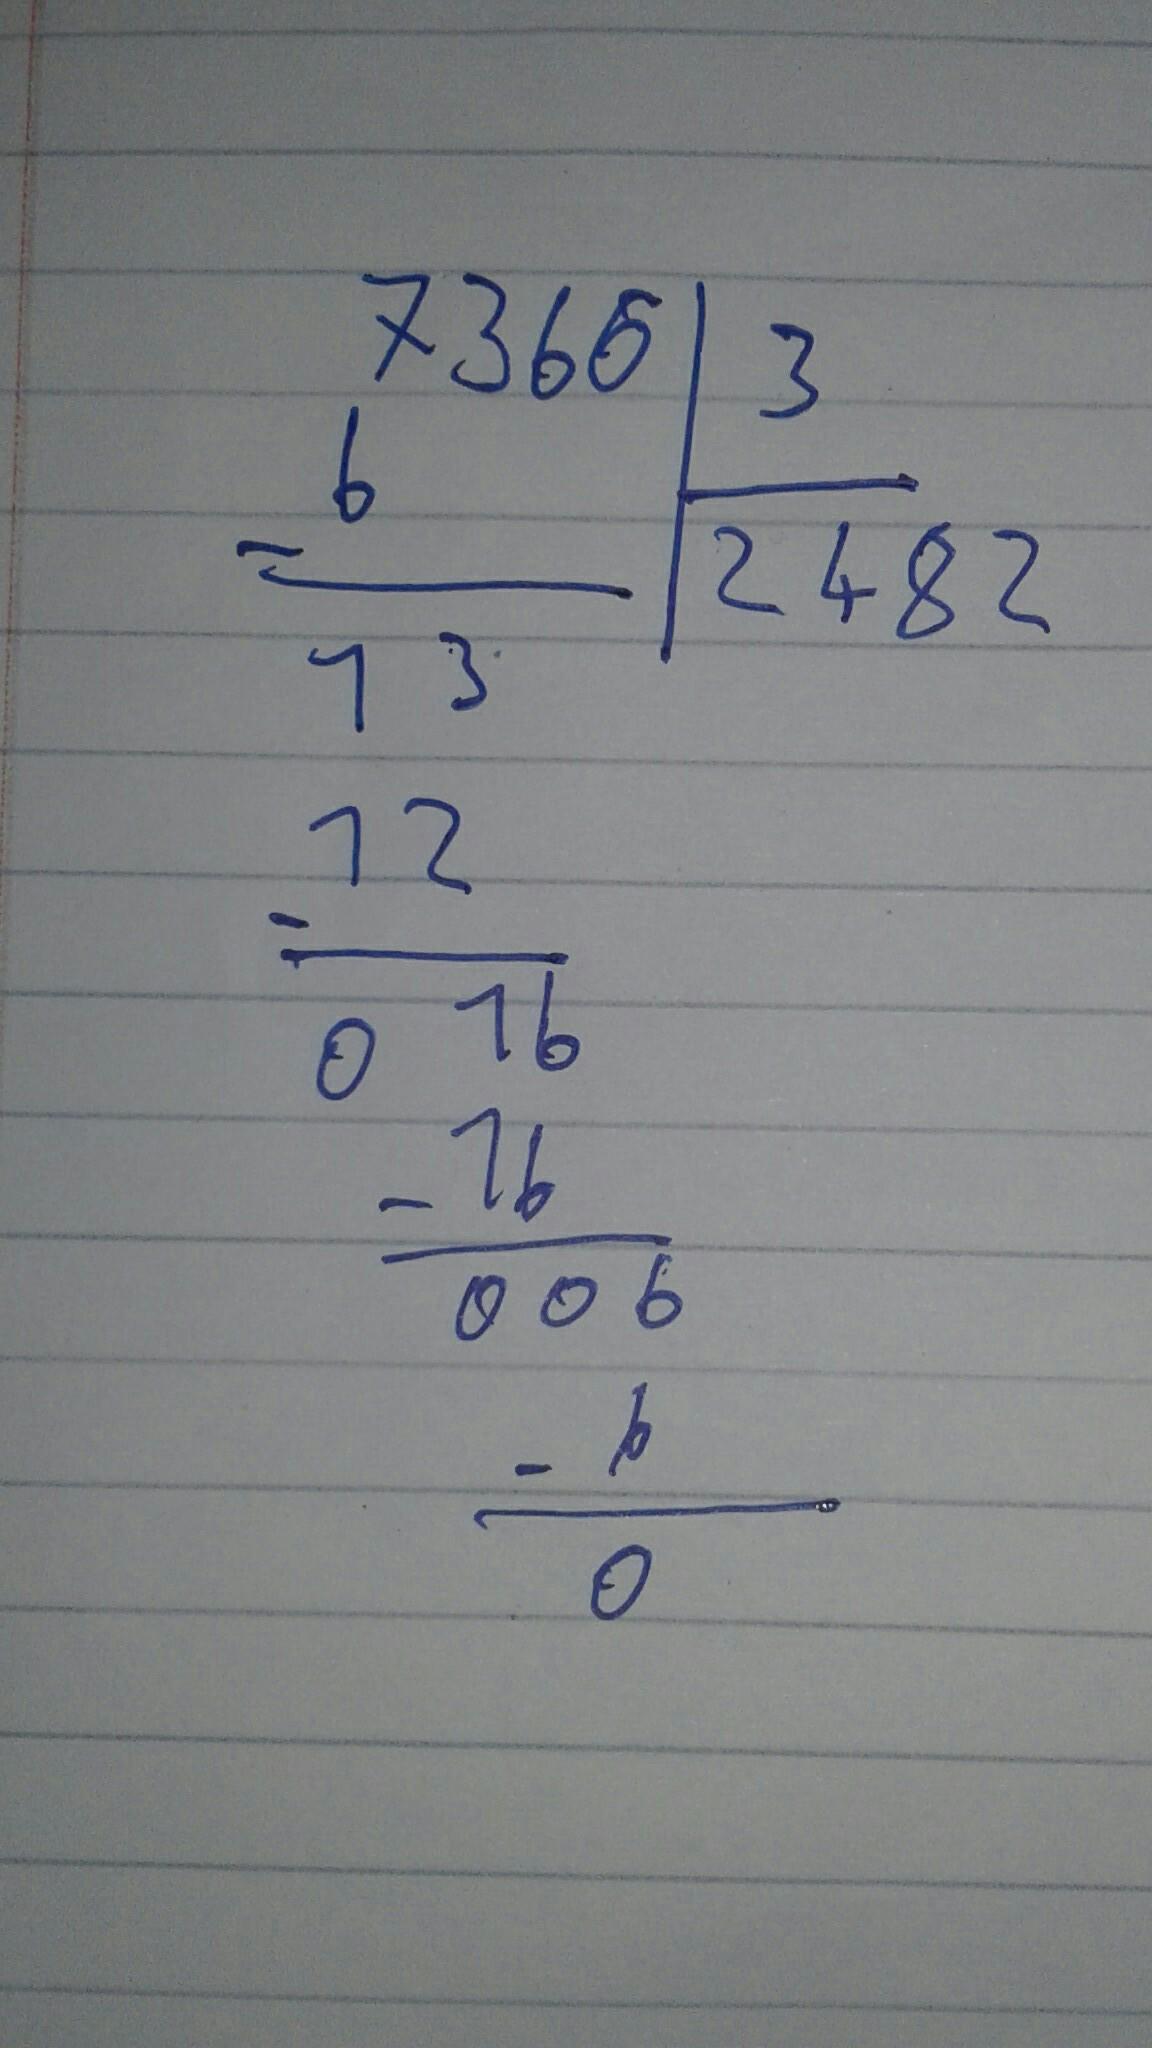 7366 3
6 2482
-
13
12
-
0 16
- 16
006
- 6
0